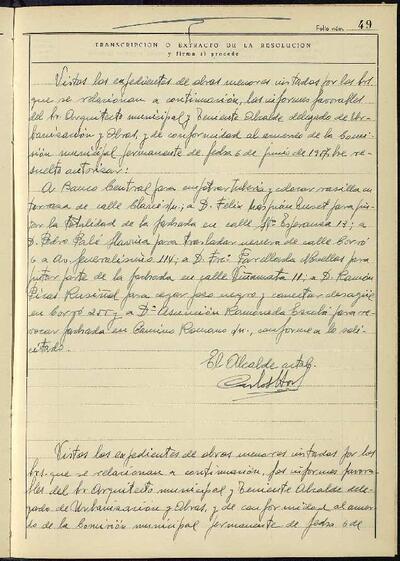 Folio núm. 49
TRANSCRIPCION O EXTRACTO DE LA RESOLUCION
y firma si procede
Vistos los expedientes de obras menores instados por los Srs.
que se relacionan a continuación, los informes favorables
del Sr Arquitecto municipal y Teniente Alcalde delegado de Ur-
banización y Obras, y de conformidad al acuerdo de la Comi-
sión municipal permanente de fecha 6 de junio de he re-
suelto autorizar:
A Banco Central para tubería y rasilla en
terraza de calle a D. Félix para pin-
tar la totalidad de la fachada en calle Esperanza 17; a
D. Pedro para trasladar nevera de calle Borró
6 a Av. Generalísimo 114; a D. Farellada para
pintar parte de la fachada en calle Viñamata 11; a D. Ramón
Rusiñol para cegar pozo negro y conectar desagüe
en y a Dª Asunción Ramoneda para re-
vocar fachada en Camino Romano s/n., conforme a lo soli-
citado.
El Alcalde acctal.
Vistos los expedientes de obras menores instados por los
Srs. que se relacionan a continuación, los informes favora-
bles del Sr Arquitecto municipal y Teniente Alcalde dele-
gado de Urbanización y Obras, y de conformidad al acuer-
do de la Comisión municipal permanente de fecha 6 de